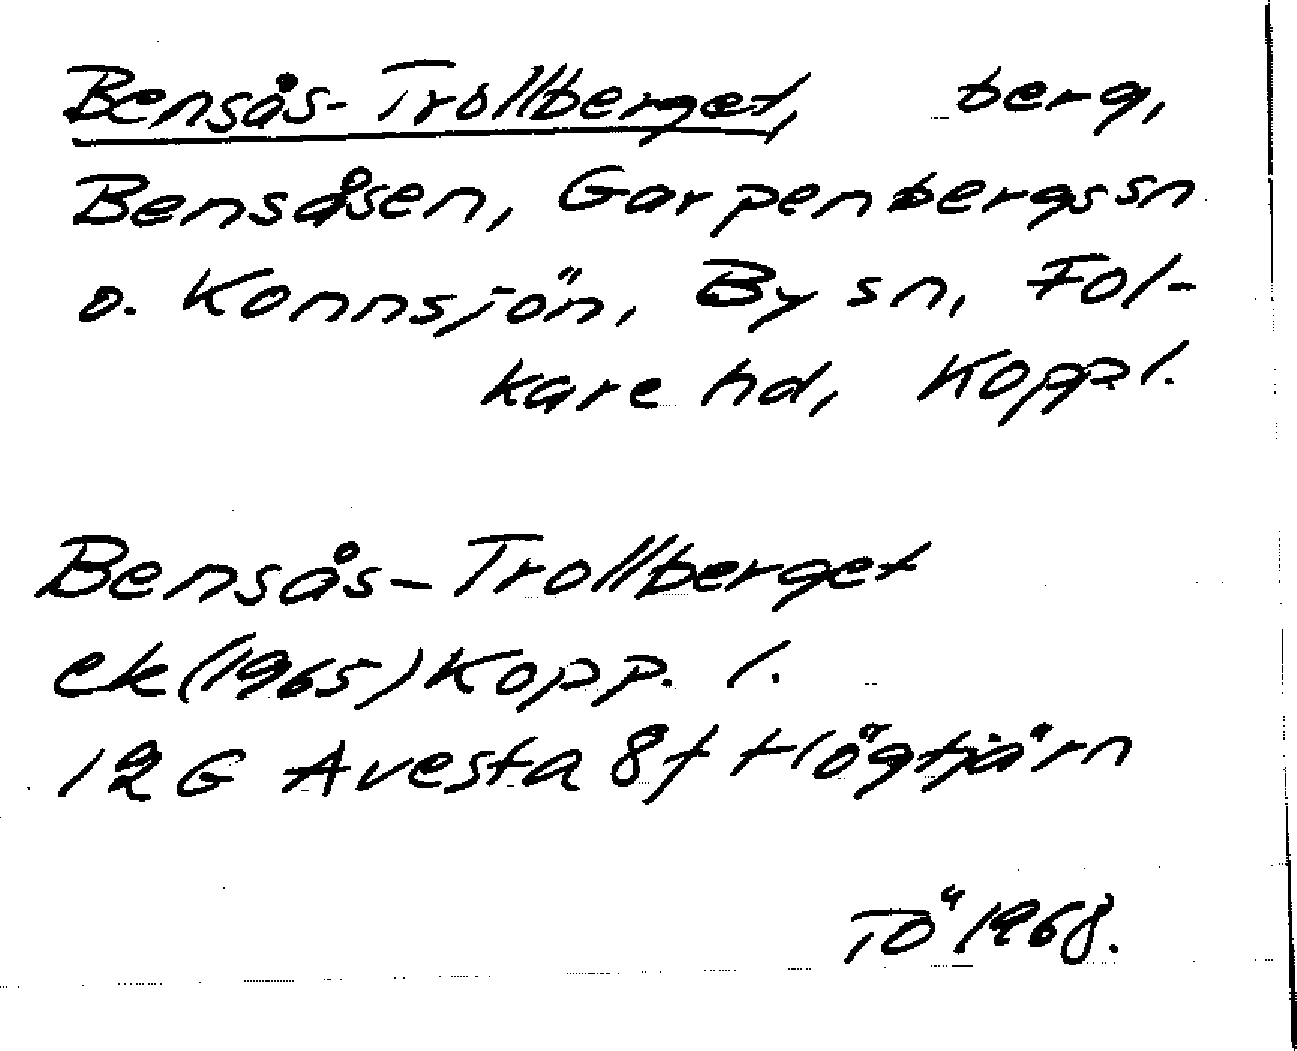 Bensås-Trollberget, berg,
Bensåsen, Garpenbergs sn
o. Konnsjön, By sn, Fol-
kare hd, Koppl.
Bensås-Trollberget
ek (1965) Kopp. l.
12 G Avesta 8f Högtjärn
TÖ 1968.